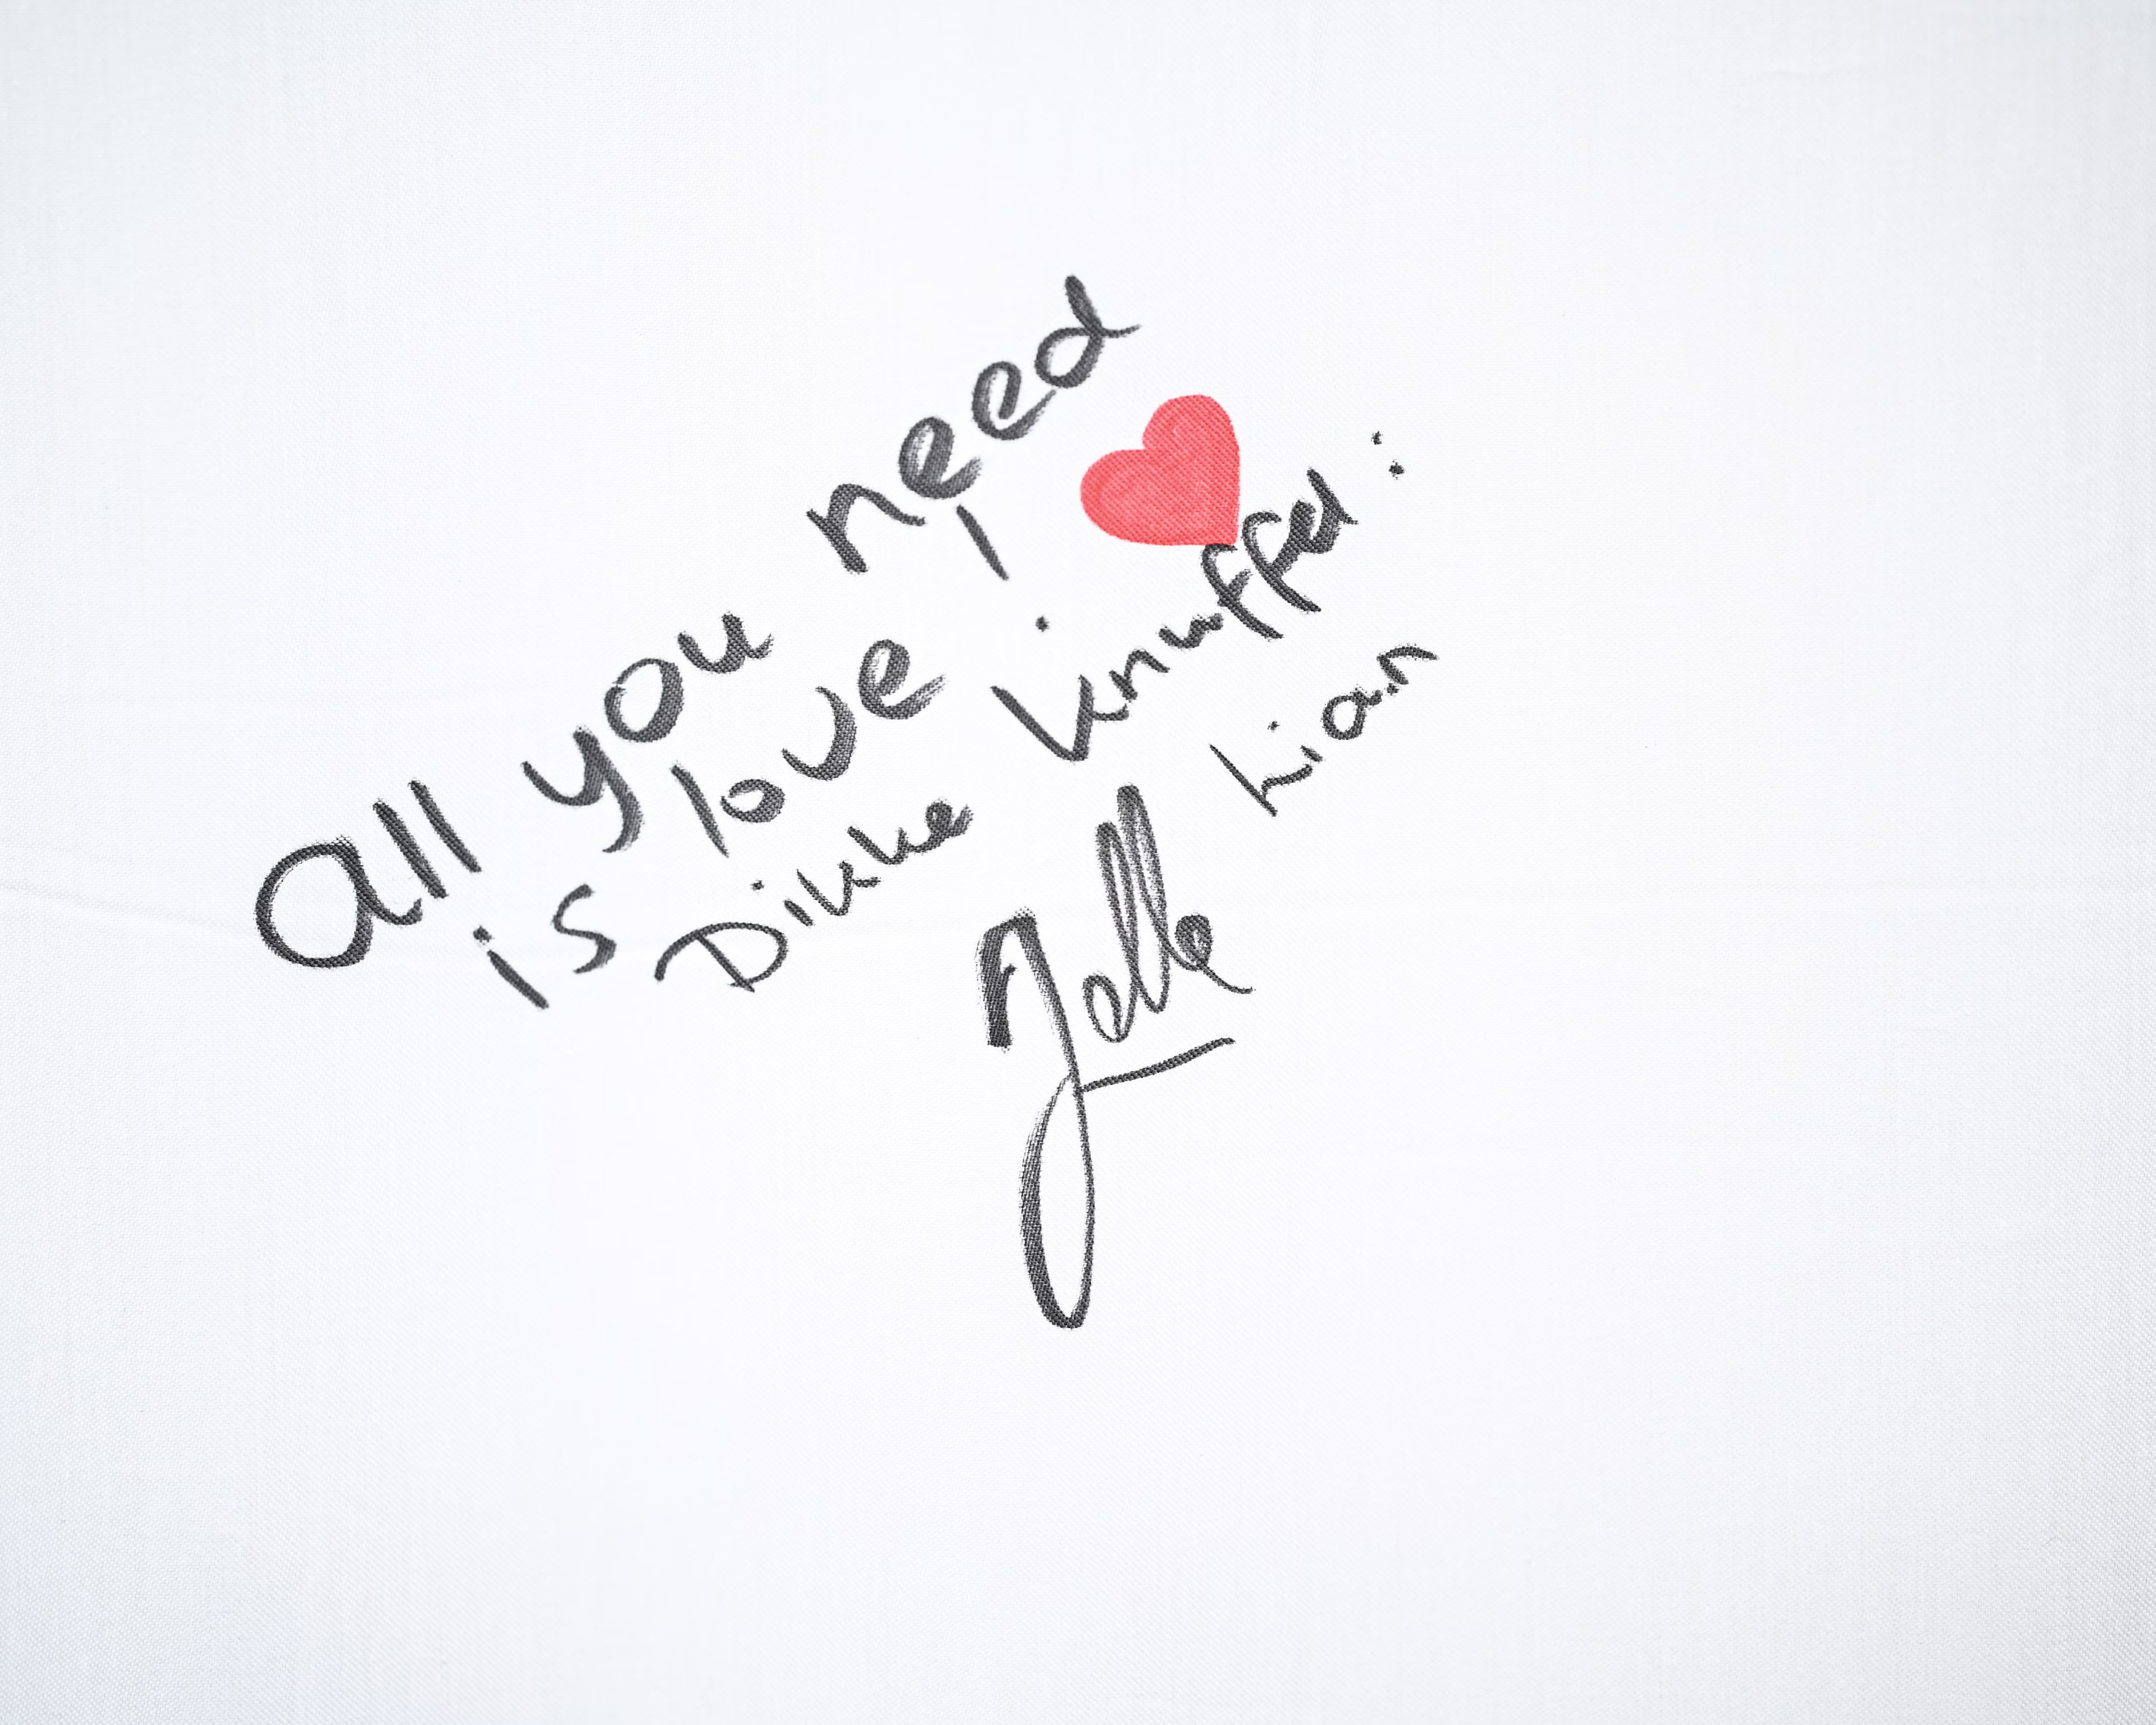 all you need
is love !
Dikke knuffel :
Lian
Jelle